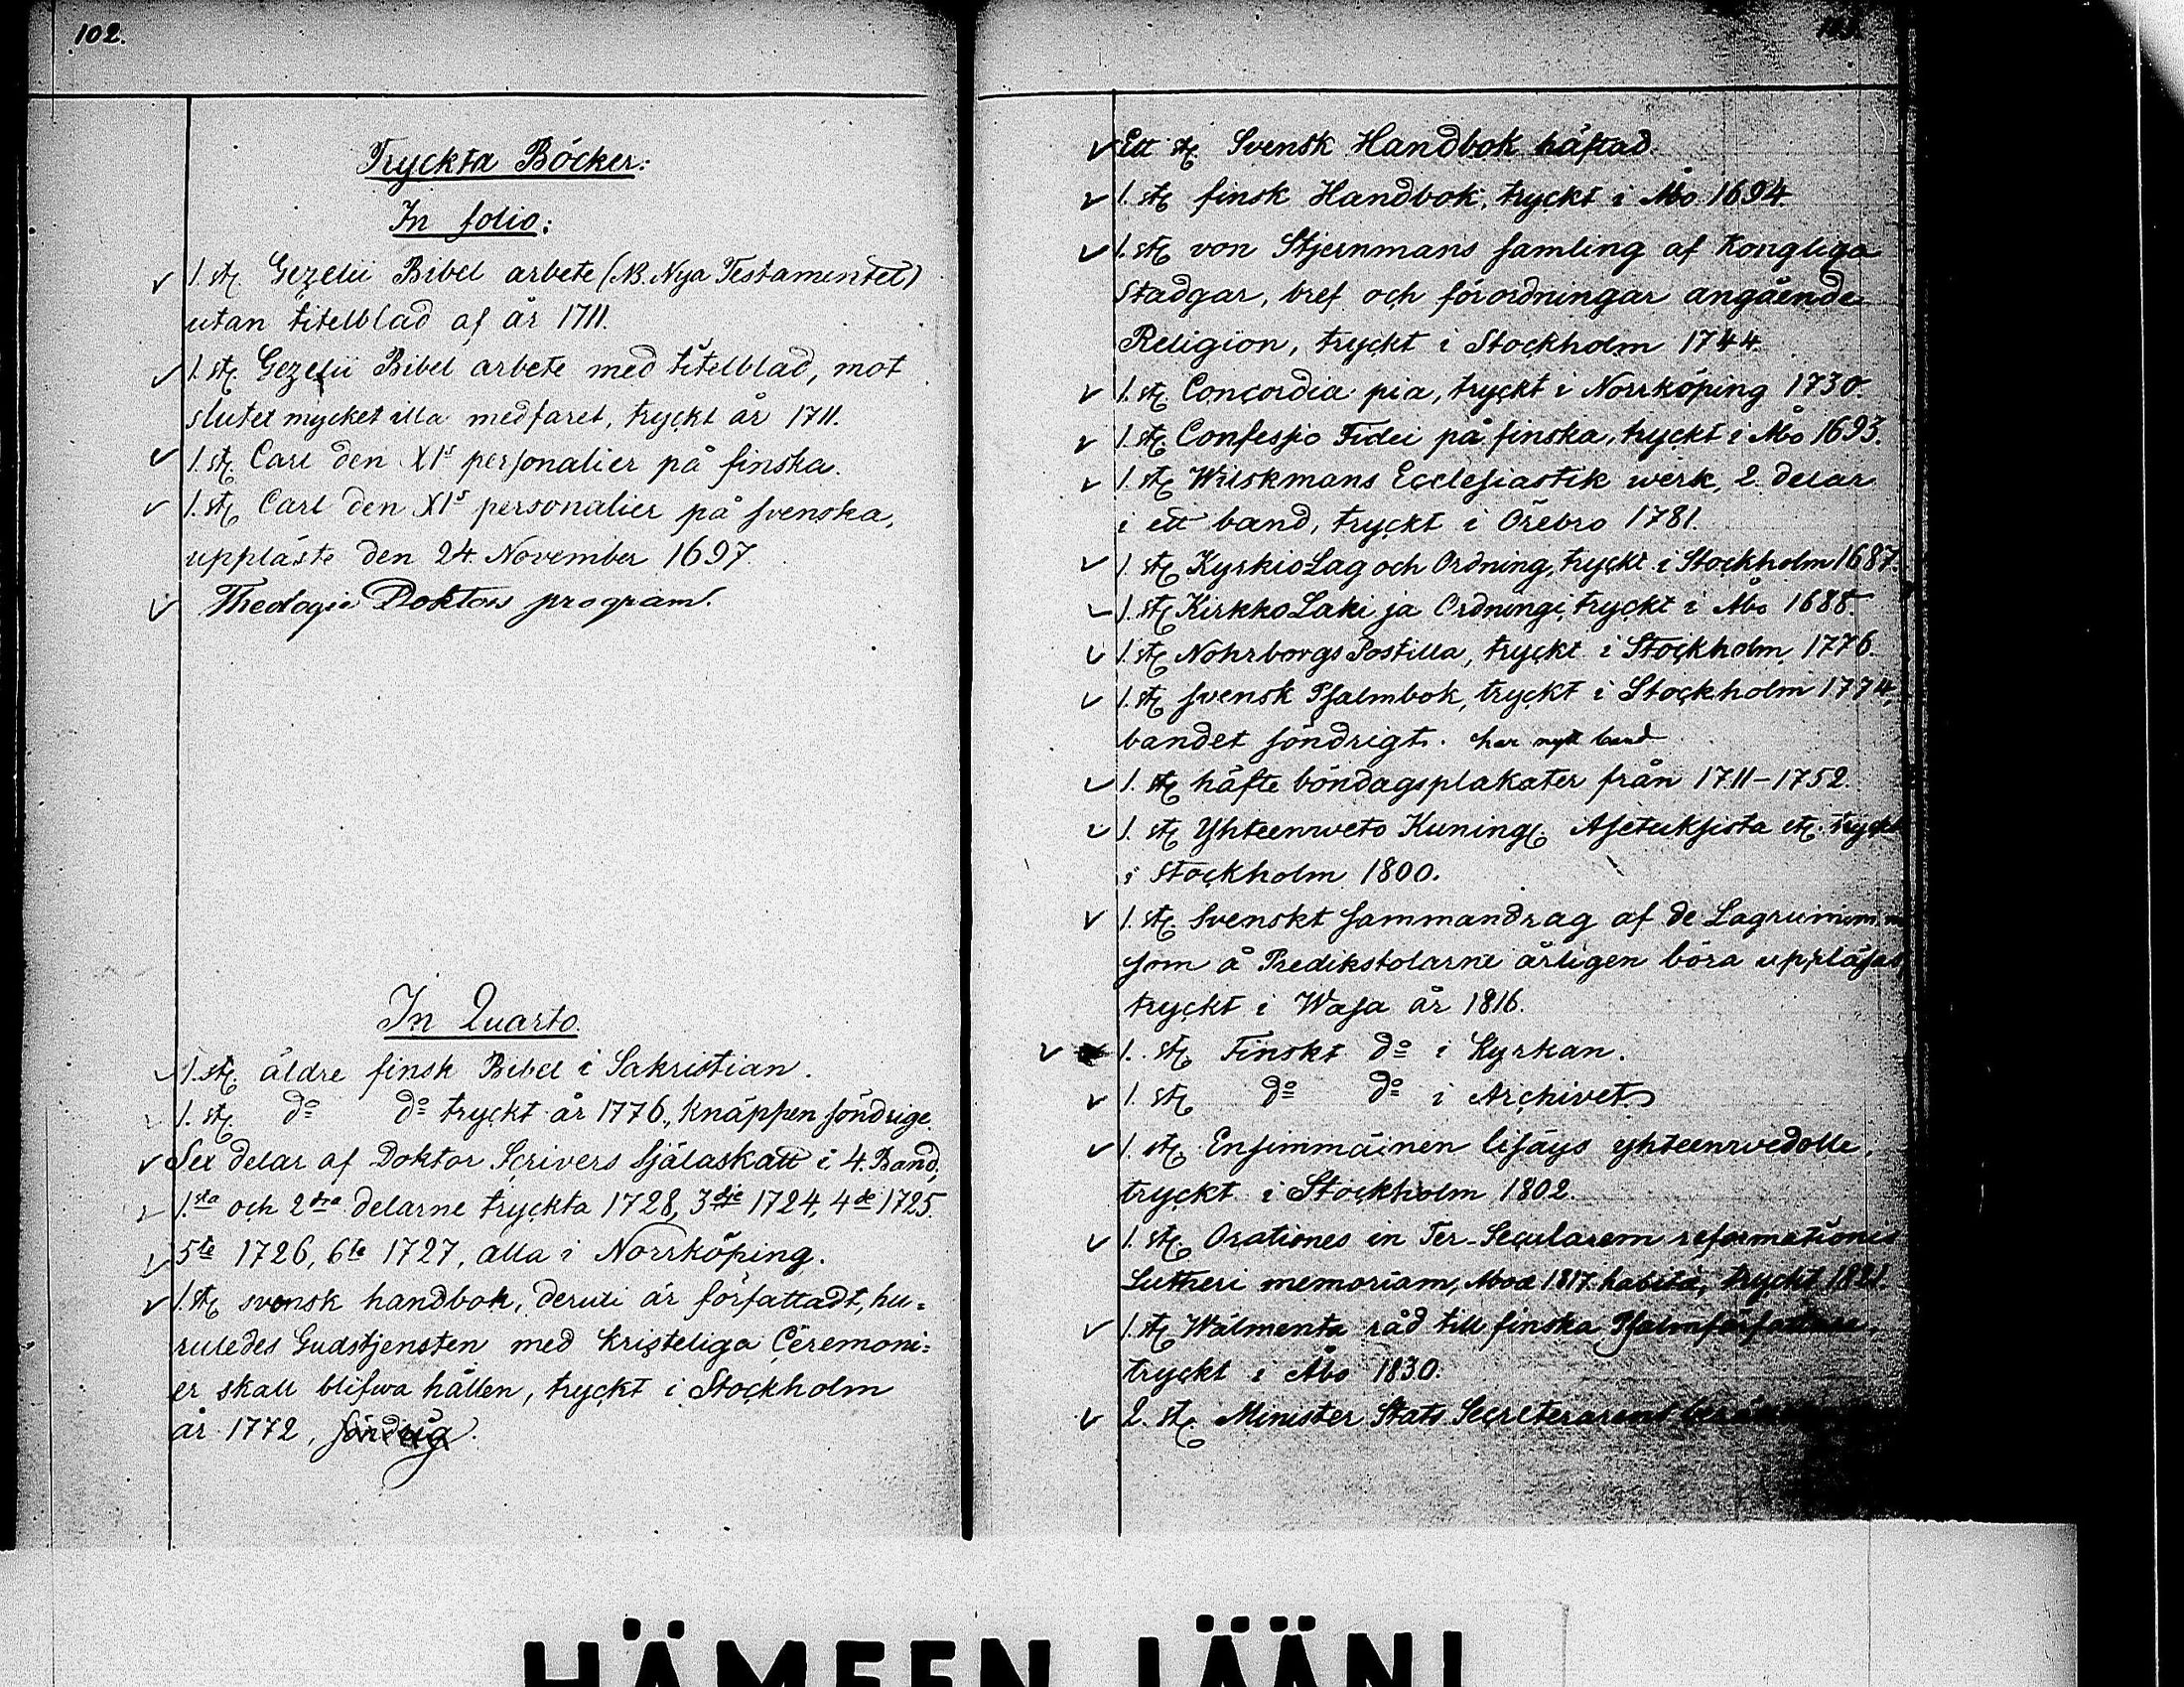 102.
Tryckta Böcker:
In folio:
1. st. Gezelii Bibel arbete (NB. Nya Testamentet)
utan titelblad af år 1711.
1. st. Gezelii Bibel arbete med titelblad, mot
slutet mycket illa medfaret, tryckt år 1711.
1. st. Carl den XI:s personalier på finska.
1. st. Carl den XI:s personalier på svenska,
uppläste den 24. November 1697.
Theologie Doktors program.
In Quarto.
1. st. äldre finsk Bibel i Sakristian.
1. st. do do tryckt år 1776., Knäppen söndrige.
Sex delar af Doktor Scrivers Själaskatt i 4. Band,
1.sta och 2dra delarne tryckta 1728, 3dje 1724, 4de 1725.
5te 1726, 6te 1727, alla i Norrköping.
1. st. svensk handbok, deruti är författadt, hu=
ruledes Gudstjensten med kristeliga Ceremoni=
er skall blifwa hållen, tryckt i Stockholm
år 1772, söndrig.
103.
Ett st. Svensk Handbok häftad.
1. st. finsk Handbok, tryckt i Åbo 1694.
1. st. von Stjernmans samling af Kongliga
Stadgar, bref och förordningar angående
Religion, tryckt i Stockholm 1744.
1. st. Concordia pia, tryckt i Norrköping 1730.
1. st. Confessio Fidei på finska, tryckt i Åbo 1693.
1. st. Wilskmans Ecclesiastik werk, 2. delar
i ett band, tryckt i Örebro 1781.
1. st. KyrkioLag och Ordning, tryckt i Stockholm 1687.
1. st. KirkkoLaki ja Ordningi, tryckt i Åbo 1688
1. st. Nohrborgs Postilla, tryckt i Stockholm 1776.
1. st. svensk Psalmbok, tryckt i Stockholm 1774,
bandet söndrigt. har nytt band
1. st. häfte böndagsplakater från 1711-1752.
1. st. Yhteenweto Kuning. Asetuksista etc. tryckt
i Stockholm 1800.
1. st. Svenskt sammandrag af de
som å Predikstolarne årligen böra uppläsas,
tryckt i Wasa år 1816.
1. st. Finskt do i Kyrkan.
1. st. do do i Archivet
1. st. Ensimmäinen lisäys yhteenwedolle,
tryckt i Stockholm 1802.
1. st. Orationes in Ter-Secularem reformationis
Lutheri memoriam, Aboæ 1817. habitæ, tryckt 1821.
1. st. Wälmenta råd till finska Psalmförfattare,
tryckt i Åbo 1830.
2. st. Minister Stats Secreterarens
HÄMEEN LÄÄNI